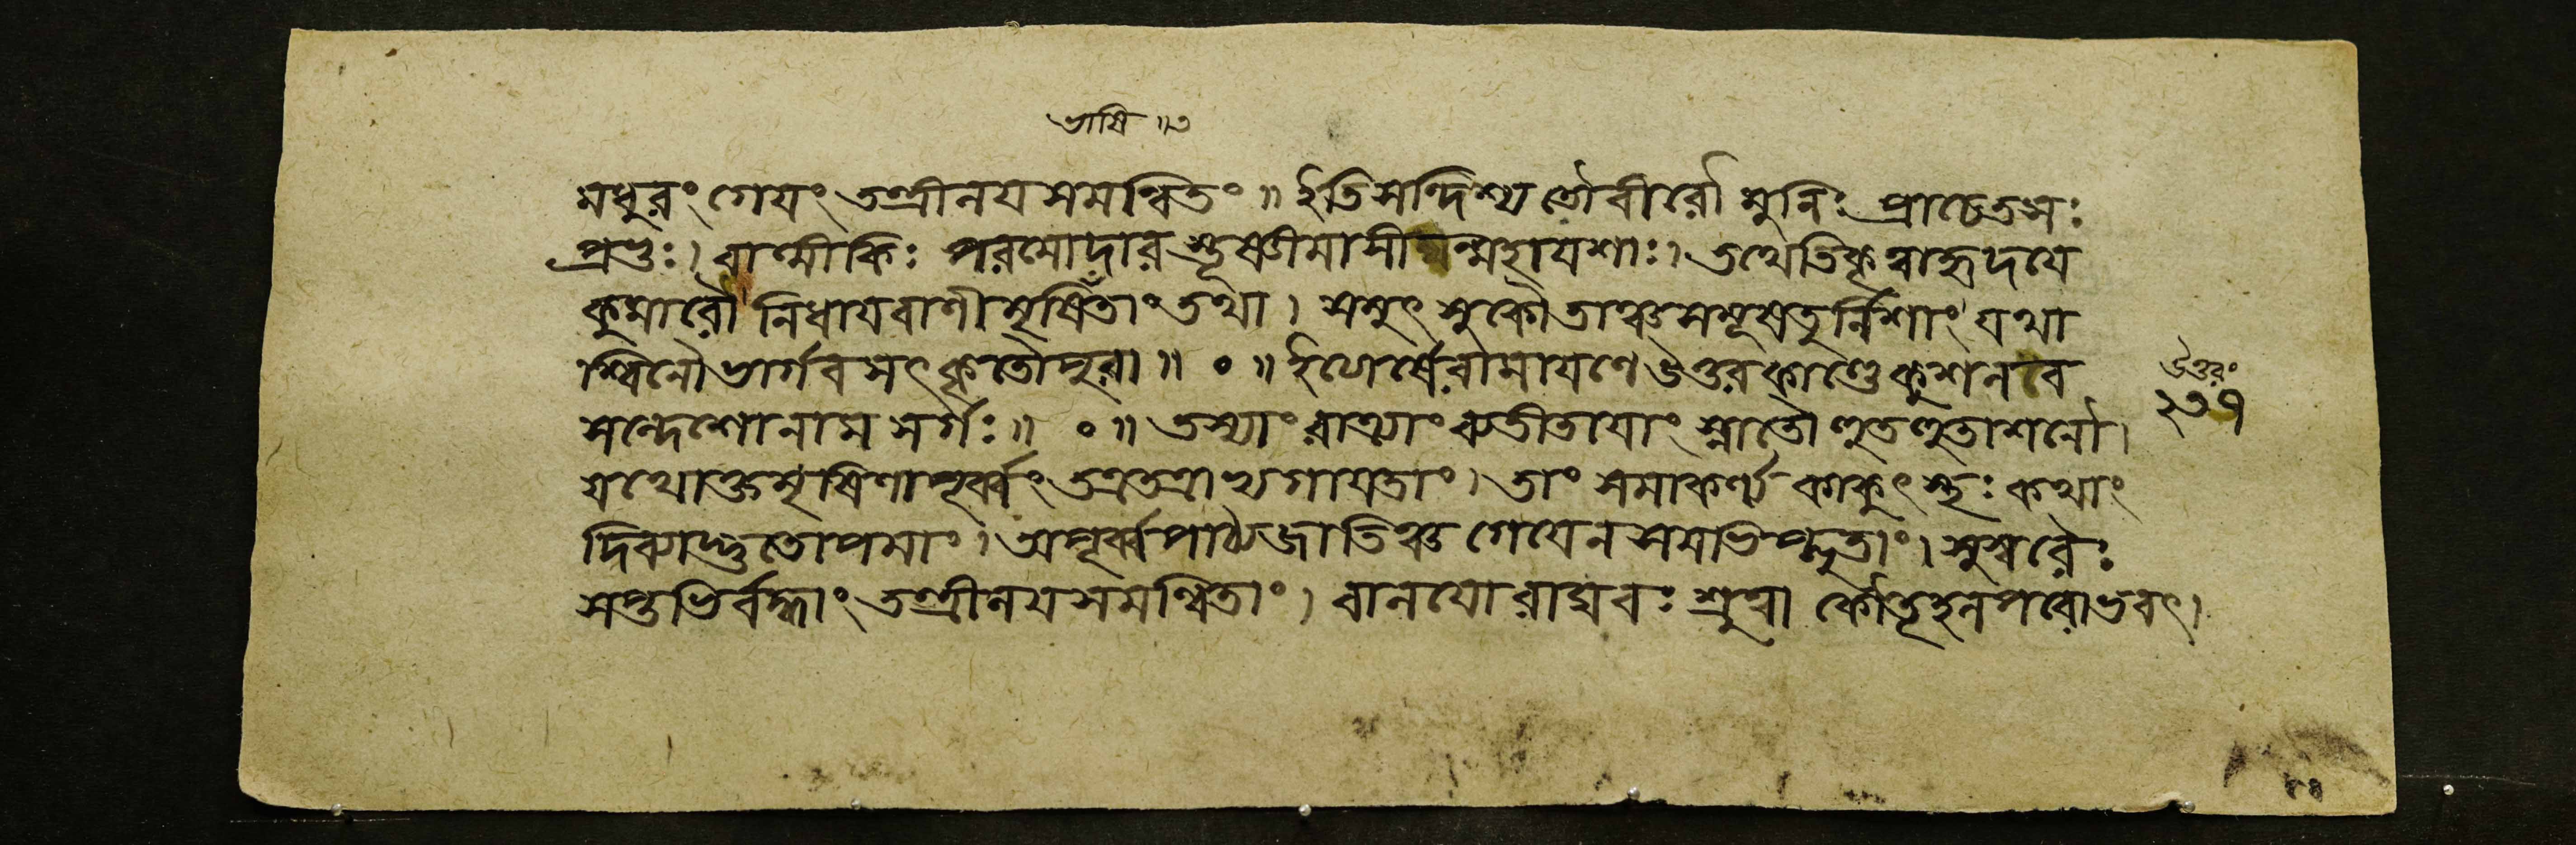 ভাষি ॥৩
মধুরং গেযং তন্ত্রীলযসমন্বিতং ॥ ইতি সন্দিশ্য তৌ বীরৌ মুনিঃ প্রাচেতসঃ
প্রভুঃ। বাল্মীকিঃ পরমোদারস্তূষ্ণীমাসীন্মহাযশাঃ। তথেতি কৃত্বা হৃদযে
কুমারৌ নিধায বাণীমৃষিতাং তথা। সমুৎসুকৌ তাঞ্চ সমূষতুর্নিশাং যথা
শ্বিনৌ ভার্গবসৎকৃতৌ পুরা ॥ ০ ॥ ইত্যার্ষে রামাযণে উত্তরকাণ্ডে কুশলব
সন্দেশো নাম সর্গঃ ॥ ০ ॥ তস্যাং রাত্র্যাং ব্যতীতাযাং স্নাতৌ হুতহুতাশনৌ।
যথোক্তমৃষিণা পূর্ব্বং তত্র তত্রাভ্যগাযতাং। তাং সমাকর্ণ্য কাকুৎস্থঃ কথাং
দিব্যাদ্ভুতোপমাং। অপূর্ব্বপাঠ্যজাতিঞ্চ গেযেন সমভিপ্লুতাং। সুস্বরৈঃ
সপ্তভির্বদ্ধাং তন্ত্রীলযসমন্বিতাং। বালযো রাঘবঃ শ্রুত্বা কৌতূহলপরোভবৎ।
উত্তরং
২৩৭